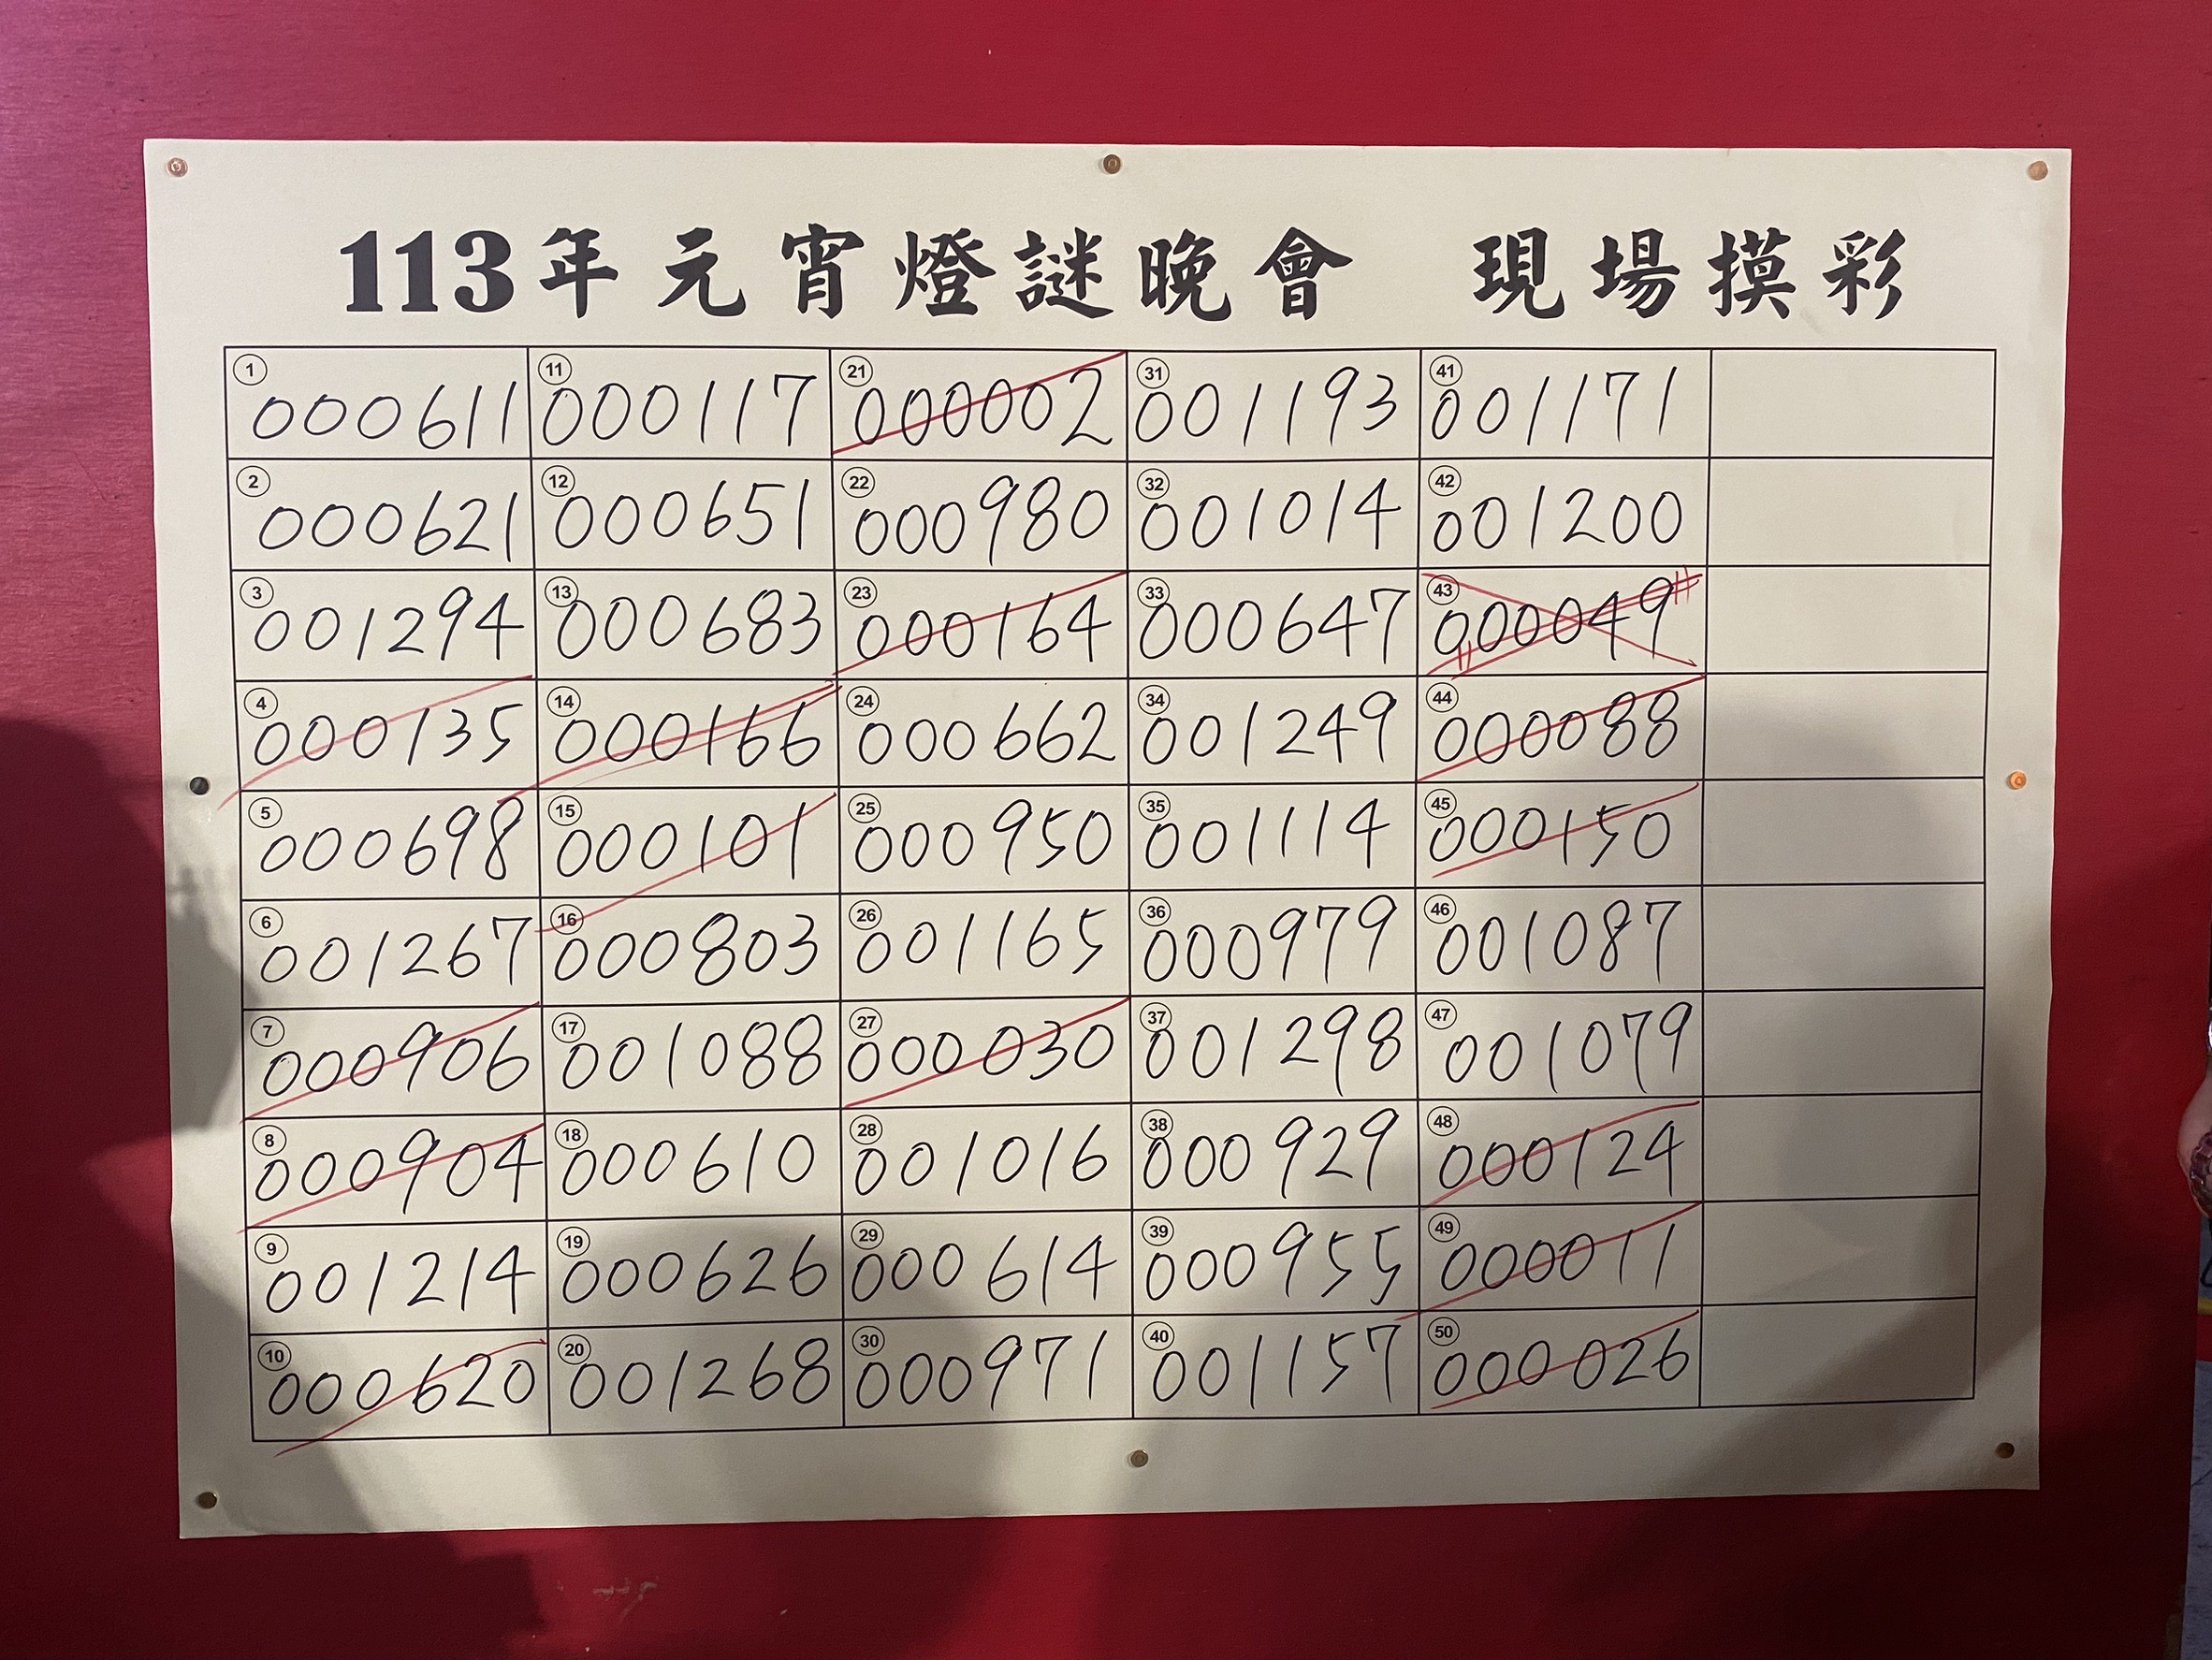 113年元宵燈謎晚會 現場摸彩
1 000611 11 000117 21 000002 31 001193 41 001171
2 000621 12 000651 22 000980 32 001014 42 001200
3 001294 13 000683 23 000164 33 000647 43 000049
4 000135 14 000166 24 000662 34 001249 44 000088
5 000698 15 000101 25 000950 35 001114 45 000150
6 001267 16 000803 26 001165 36 000979 46 001087
7 000906 17 001088 27 000030 37 001298 47 001079
8 000904 18 000610 28 001016 38 000929 48 000124
9 001214 19 000626 29 000614 39 000955 49 000011
10 000620 20 001268 30 000971 40 001157 50 000026